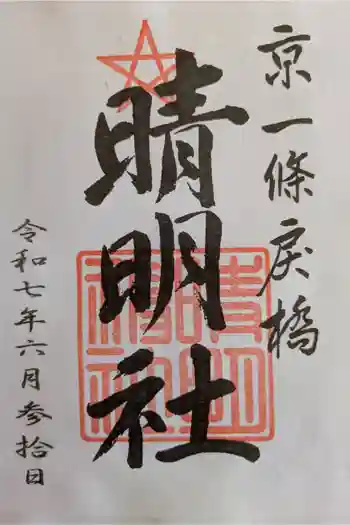 京一條戻橋
晴明社
令和七年六月参拾日